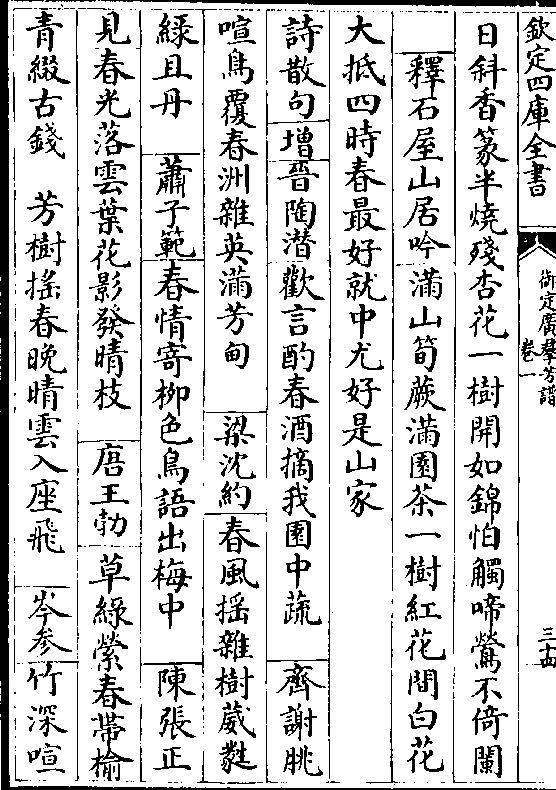 欽定四庫全書
御定廣羣芳譜
卷一
三十四
日斜香篆半燒殘杏花一樹開如錦怕觸啼鶯不倚闌
釋石屋山居吟滿山筍蕨滿園茶一樹紅花間白花
大抵四時春最好就中尤好是山家
詩散句增晉陶潛歡言酌春酒摘我園中蔬 齊謝朓
喧鳥覆春洲雜英滿芳甸 梁沈約春風搖雜樹葳蕤
綠且丹 蕭子範春情寄柳色鳥語出梅中 陳張正
見春光落雲葉花影發晴枝 唐王勃草綠縈春帶榆
青綴古錢 芳樹搖春晚晴雲入座飛 岑參竹深喧